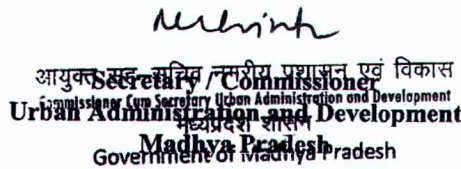 आयुक्त सह-सचिव नगरीय प्रशासन एवं विकास
Secretary / Commissioner
Commissioner Cum Secretary Urban Administration and Development
Urban Administration and Development
मध्यप्रदेश शासन
Madhya Pradesh
Government of Madhya Pradesh